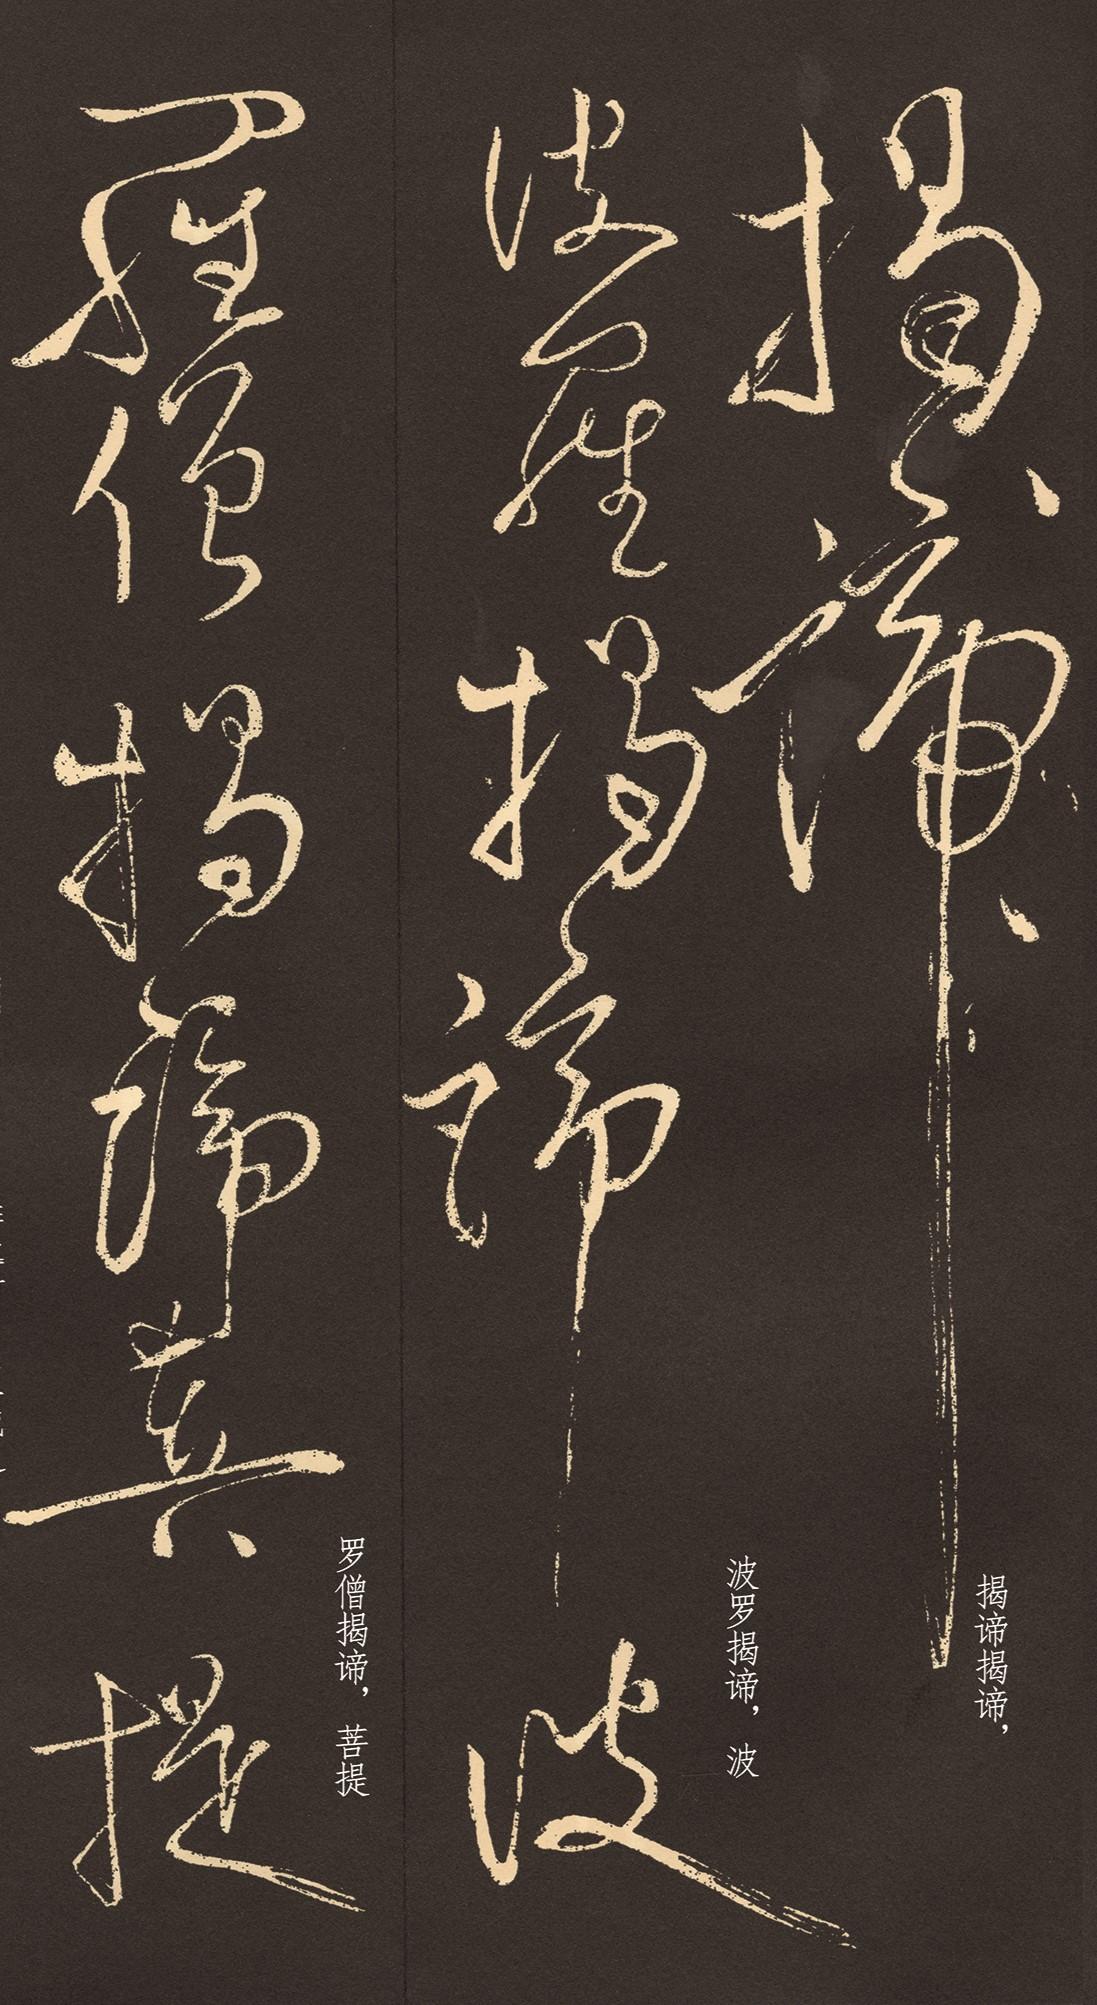 揭、諦、
揭谛揭谛，
波羅揭諦 波
波罗揭谛，波
羅僧揭諦 菩提
罗僧揭谛，菩提